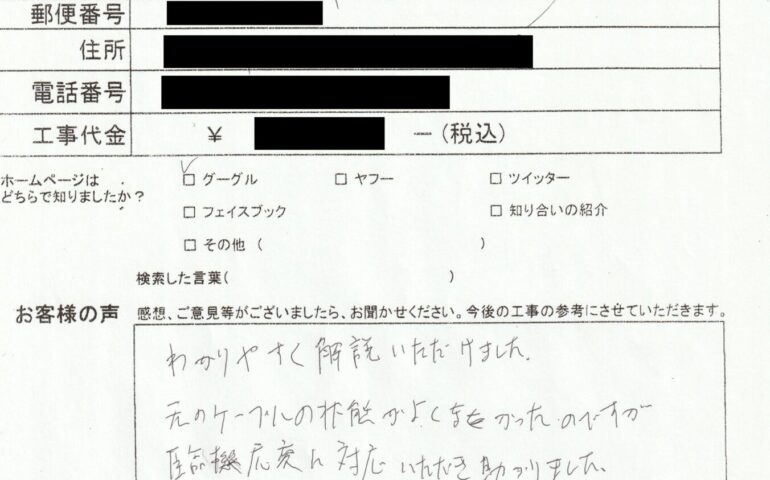 郵便番号
住所
電話番号
工事代金 ¥ ー(税込)
ホームページは
どちらで知りましたか？
□ グーグル □ ヤフー □ ツイッター
□ フェイスブック □ 知り合いの紹介
□ その他 ( )
検索した言葉( )
お客様の声 感想、ご意見等がございましたら、お聞かせください。今後の工事の参考にさせていただきます。
わかりやすく解説いただけました。
元のケーブルの状態がよくなかったのですが
臨機応変に対応いただき助かりました。